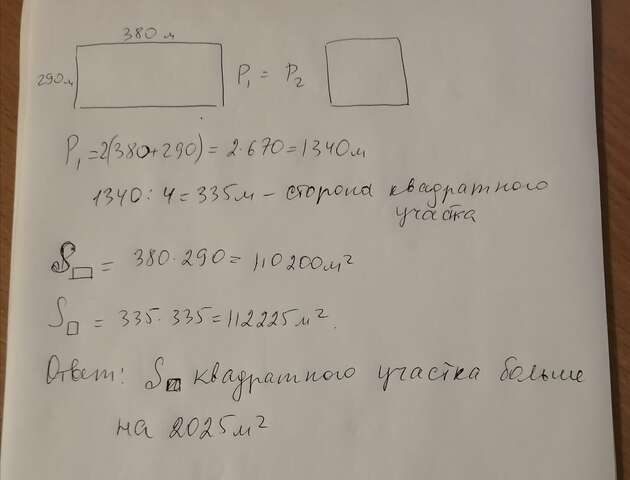 380 м
290м
P₁ = P₂
P₁=2(380+290)=2·670=1340м
1340:4=335м – сторона квадратного
участка
S▭ = 380·290=110200м²
S□ = 335·335=112225м².
Ответ: S квадратного участка больше
на 2025м²